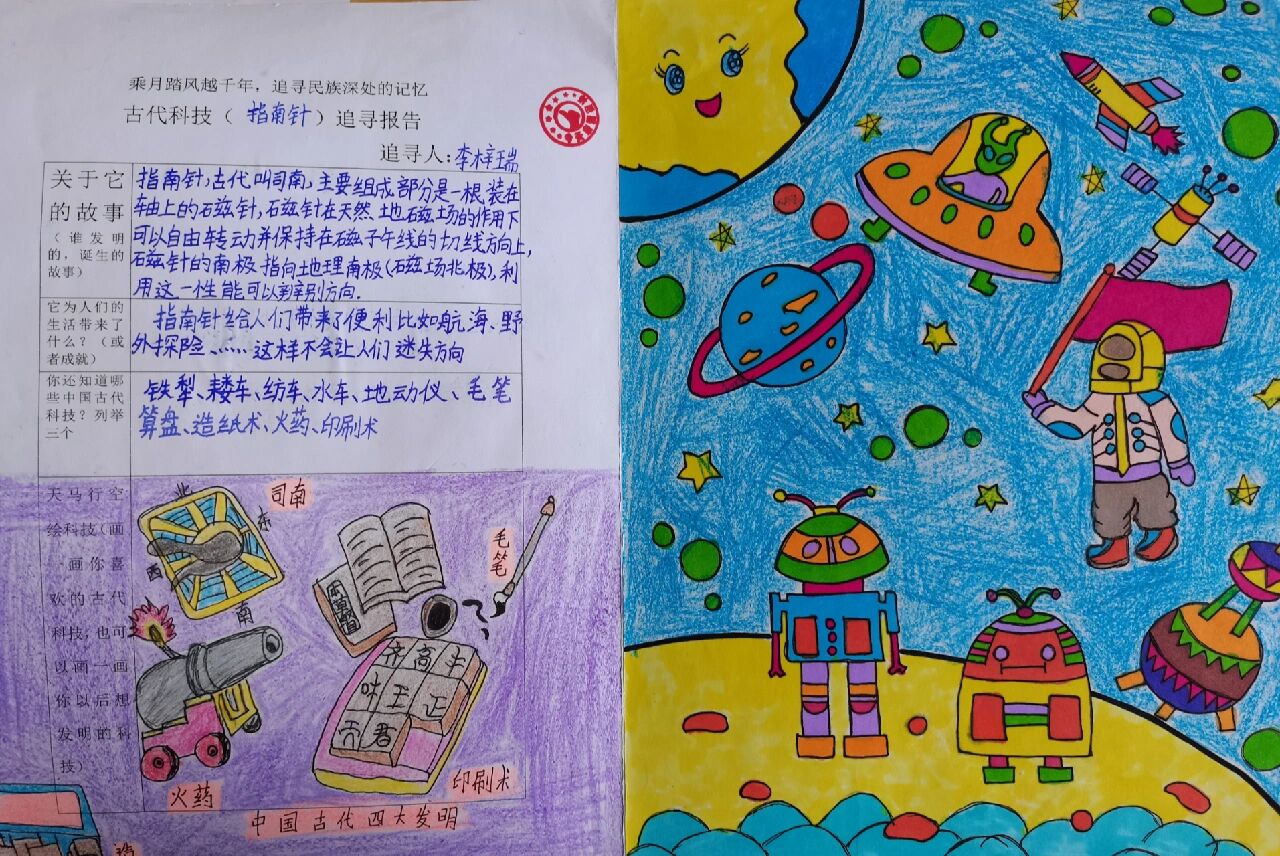 乘月踏风越千年，追寻民族深处的记忆
古代科技（指南针）追寻报告
追寻人:李梓瑞
关于它
的故事
（谁发明
的，诞生的
故事）
指南针，古代叫司南，主要组成部分是一根装在
轴上的磁针，磁针在天然地磁场的作用下
可以自由转动并保持在磁子午线的切线方向上，
磁针的南极指向地理南极(磁场北极)，利
用这一性能可以辨别方向.
它为人们的
生活带来了
什么？（或
者成就）
指南针给人们带来了便利比如航海、野
外探险、……这样不会让人们迷失方向
你还知道哪
些中国古代
科技？列举
三个
铁犁、耧车、纺车、水车、地动仪、毛笔
算盘、造纸术、火药、印刷术
天马行空
绘科技（画
一画你喜
欢的古代
科技，也可
以画一画
你以后想
发明的科
技）
北
东
西
南
司南
毛笔
火药
印刷术
中国古代四大发明